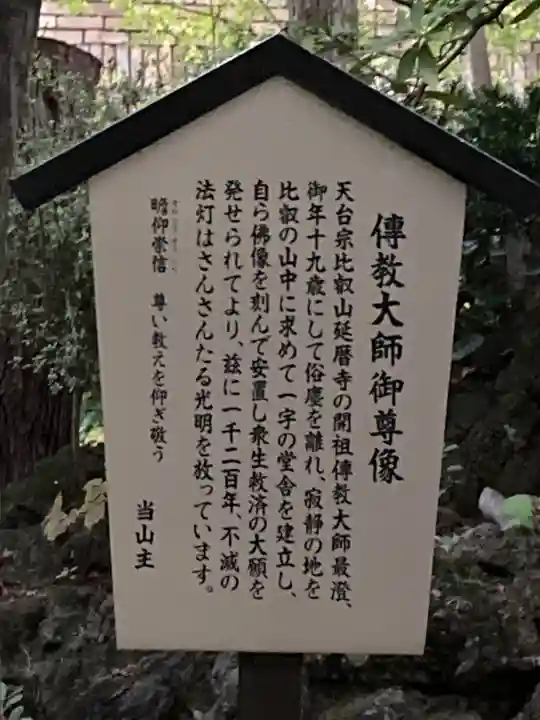 傳教大師御尊像
天台宗比叡山延暦寺の開祖傳教大師最澄、
御年十九歳にして俗塵を離れ、寂静の地を
比叡の山中に求めて一宇の堂舎を建立し、
自ら佛像を刻んで安置し衆生救済の大願を
発せられてより、玆に一千二百年、不滅の
法灯はさんさんたる光明を放っています。
瞻仰崇信 尊い教えを仰ぎ敬う
当山主